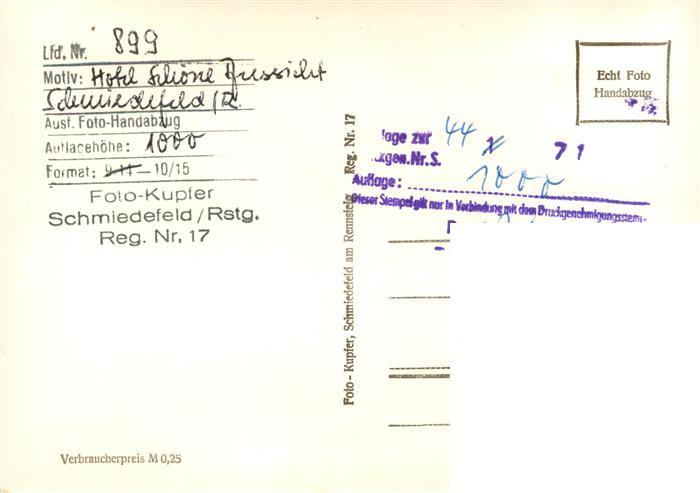 Lfd. Nr. 899
Motiv: Hotel Schöne Aussicht
Schmiedefeld/R.
Ausf. Foto-Handabzug
Auflagehöhe: 1000
Format: 9-14 — 10/15
Foto-Kupfer
Schmiedefeld/Rstg.
Reg. Nr. 17
Verbraucherpreis M 0,25
Foto-Kupfer, Schmiedefeld am Rennsteig Reg. Nr. 17
Echt Foto
Handabzug
lage zur 44 71
kgen.Nr.S.
Auflage: 1000
Dieser Stempel gilt nur in Verbindung mit dem Druckgenehmigungsstem-